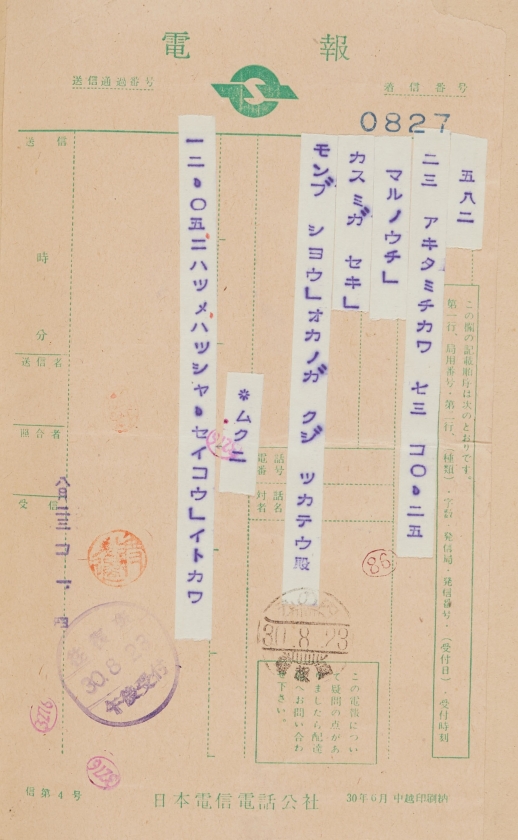 電報
送信通過番号
着信番号
0827
この欄の記載順序は次のとおりです。
第一行、局用番号・第二行、(種類)・字数・発信局・発信番号・(受付日)・受付時刻
五八二
二三 アキタミチカワ 七三 コ〇、二五
マルノウチ」
カスミガ セキ」
モンブ シヨウ」オカノガ クジ ツカテウ殿
*ムクニ
一二、〇五ニハツメハツシヤ、セイコウ」イトカワ
送信
時
分
送信者
照合者
受信
電話番号
対話者名
八月二三
30.8.23
30.8.23
午後受付
この電報につい
て疑問の点があ
ましたら配達
へお問い合わ
下さい。
信第4号
日本電信電話公社
30年6月 中越印刷納